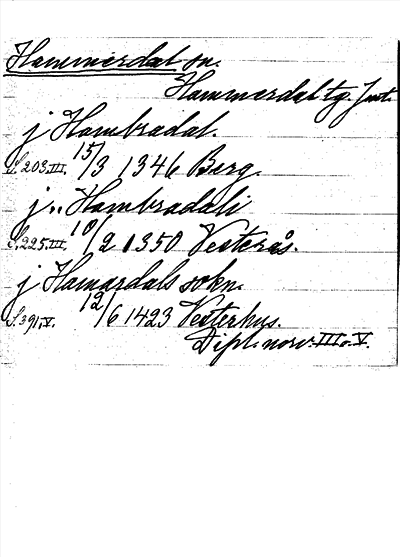 Hammerdal sn.
Hammerdal tg. Jmt.
j Hambradal.
S. 203. III. 15/3 1346 Berg.
j .. Hambradali
S. 225. III. 10/2 1350 Vesterås.
j Hamardals sokn.
S. 391. V. 12/6 1423 Vesterhus.
Dipl. norv. III o. V.